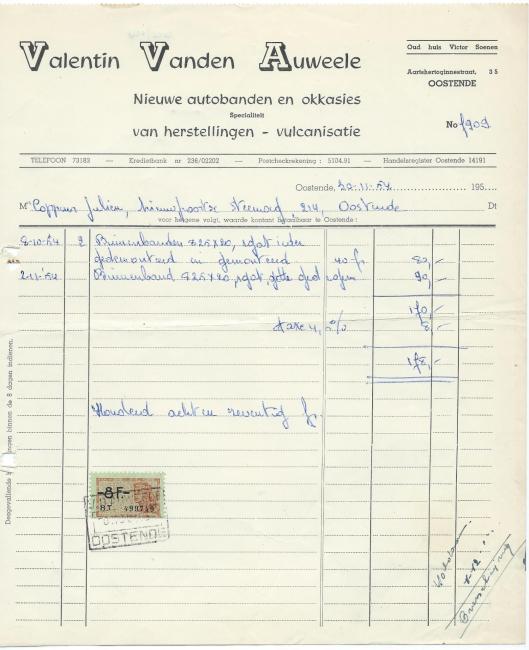 Valentin Vanden Auweele
Oud huis Victor Soenen
Aartshertoginnestraat, 35
OOSTENDE
Nieuwe autobanden en okkasies
Specialiteit
van herstellingen - vulcanisatie
No 1909
TELEFOON 73183 — Kredietbank nr 236/02202 — Postcheckrekening : 5104.91 — Handelsregister Oostende 14191
Oostende, 30-11-54 195
M Coppens Julien, Nieuwpoortse steenweg, 214, Oostende Dt
voor hetgene volgt, waarde kontant betaalbaar te Oostende :
8-10-54 2 Binnenbanden 825x20, 1 gat ieder
gedemonteerd en gemonteerd 40 fr 80,-
2-11-54 Binnenband 825x20, 1 gat 90,-
170,-
taxe 4, % 8,-
178,-
Honderd acht en zeventig fr.
-8F-
OOSTENDE
binnen de 8 dagen indienen.